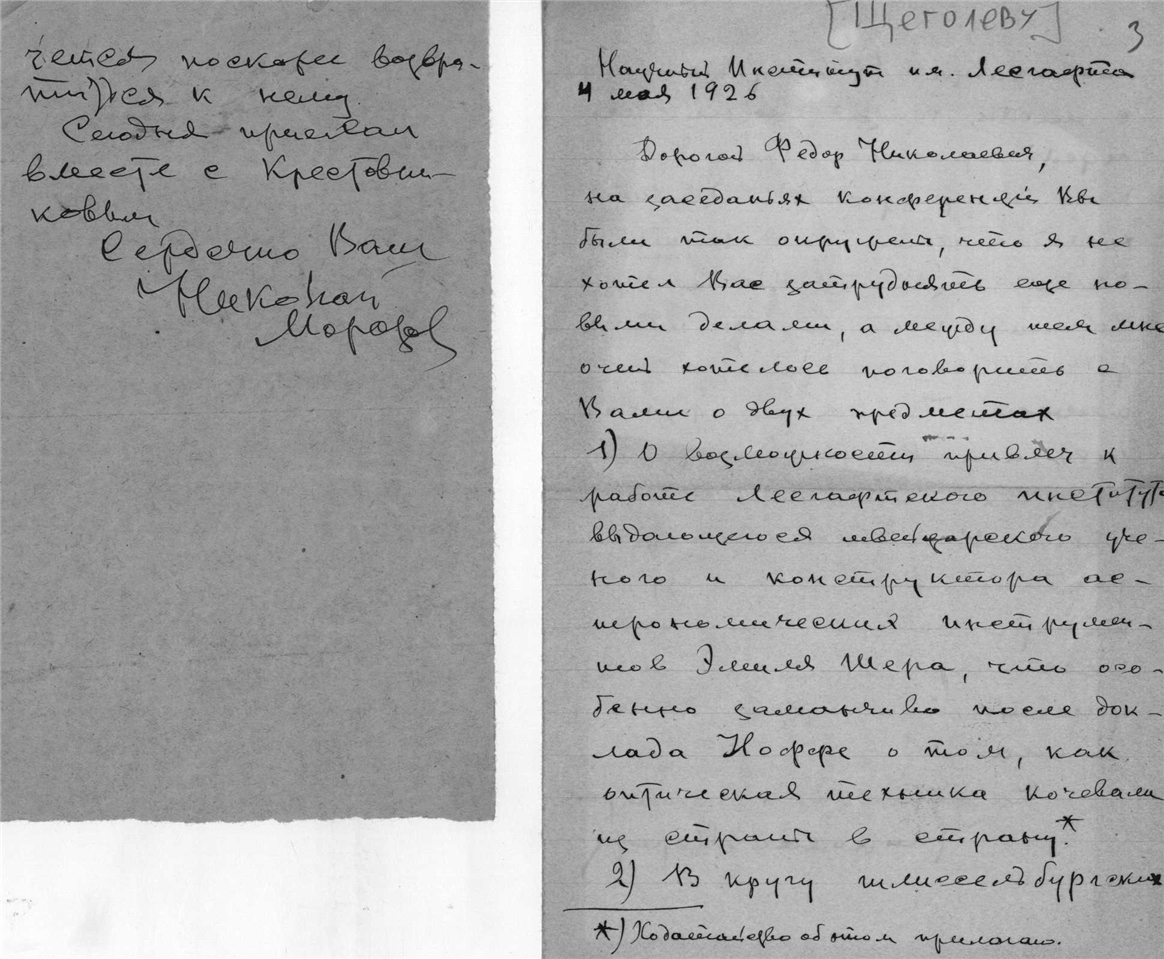 чется поскорее возвра-
титься к нему.
Сегодня приехал
вместе с Крестовни-
ковым
Сердечно Ваш
Николай
Морозов
[Щеголеву]
3
Научный Институт им. Лесгафта
4 мая 1926
Дорогой Федор Николаевич,
на заседаньях конференции Вы
были так окружены, что я не
хотел Вас затруднять еще но-
выми делами, а между тем мне
очень хотелось поговорить с
Вами о двух предметах
1) О возможности привлеч к
работе Лесгафтского института
выдающегося швейцарского уче-
ного и конструктора ас-
трономических инструмен-
тов Эмиля Шера, что осо-
бенно заманчиво после док-
лада Иоффе о том, как
оптическая техника кочевала
из страны в страну.*
2) В кругу шлиссельбургских
*) Ходатайство об этом прилагаю.